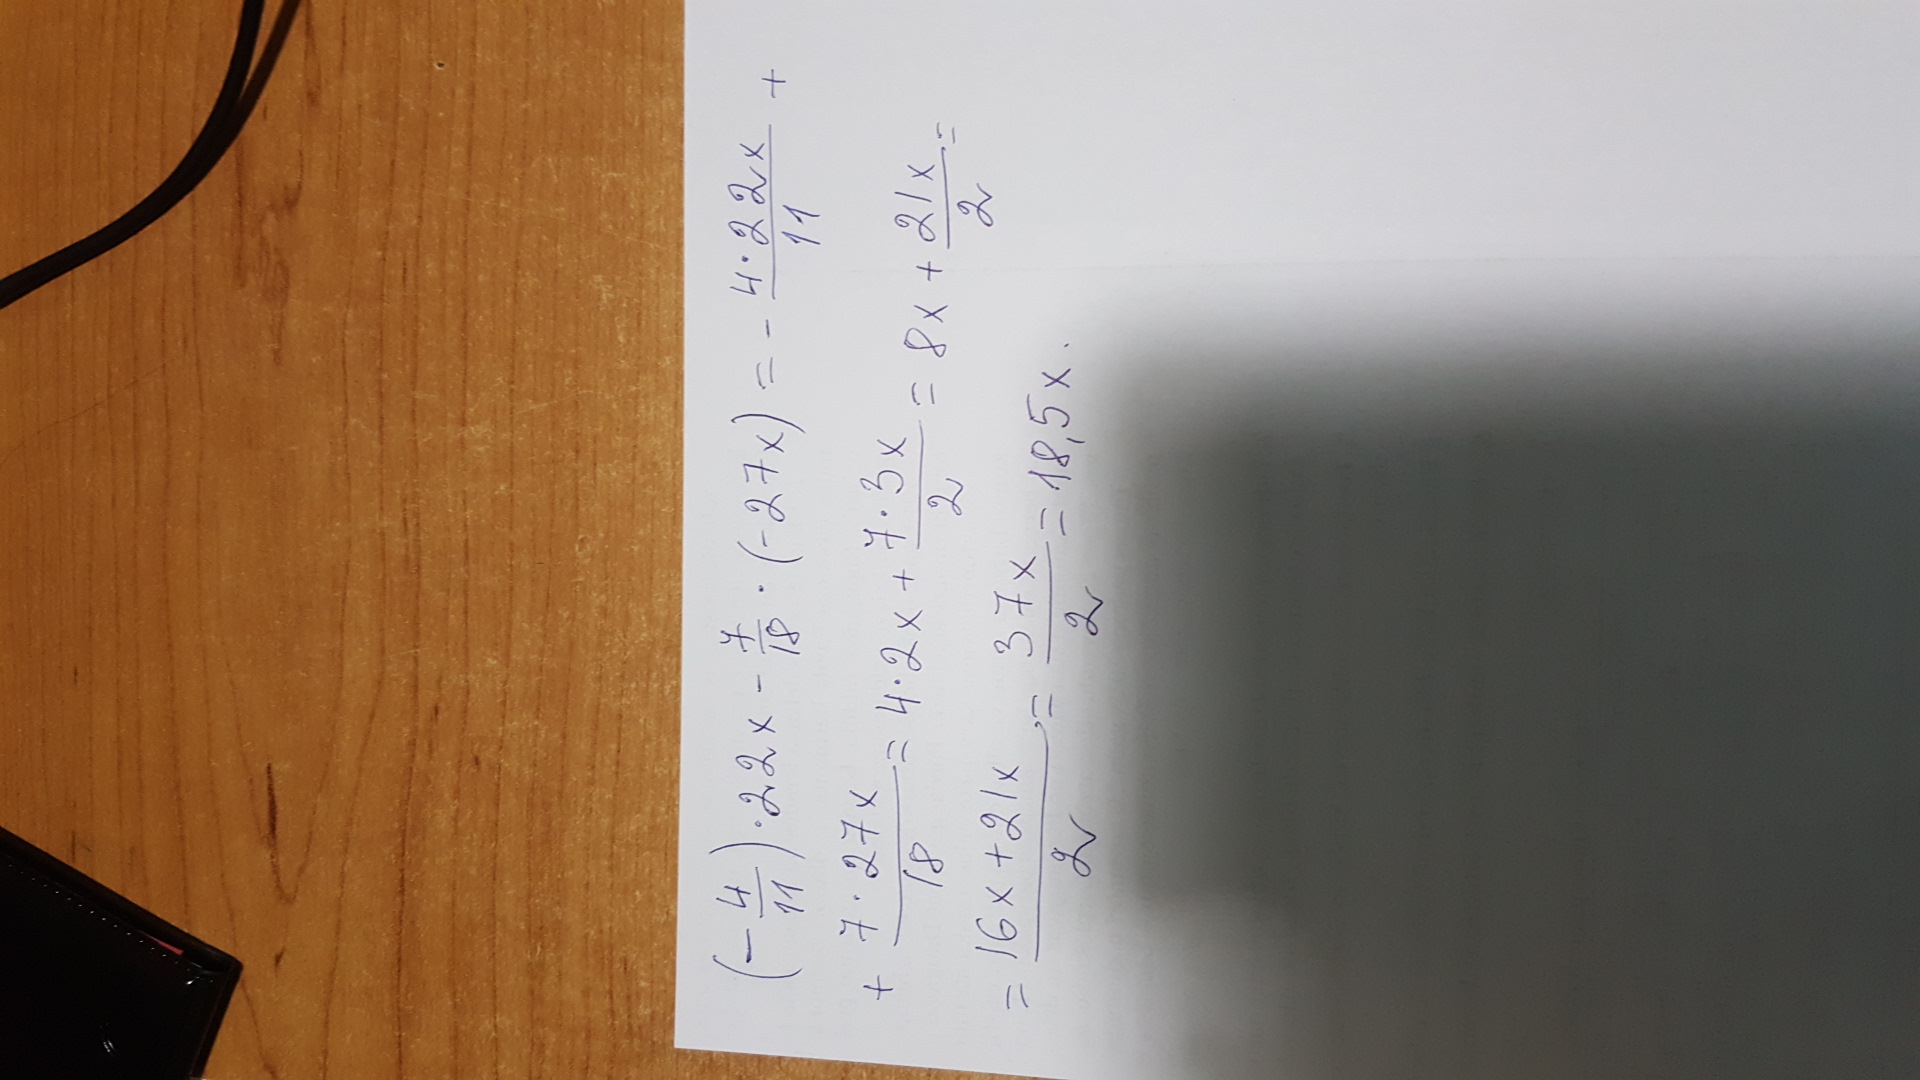 (-4/11)·22x - 7/18·(-27x) = - 4·22x/11 +
+ 7·27x/18 = 4·2x + 7·3x/2 = 8x + 21x/2 =
= 16x+21x/2 = 37x/2 = 18,5x.